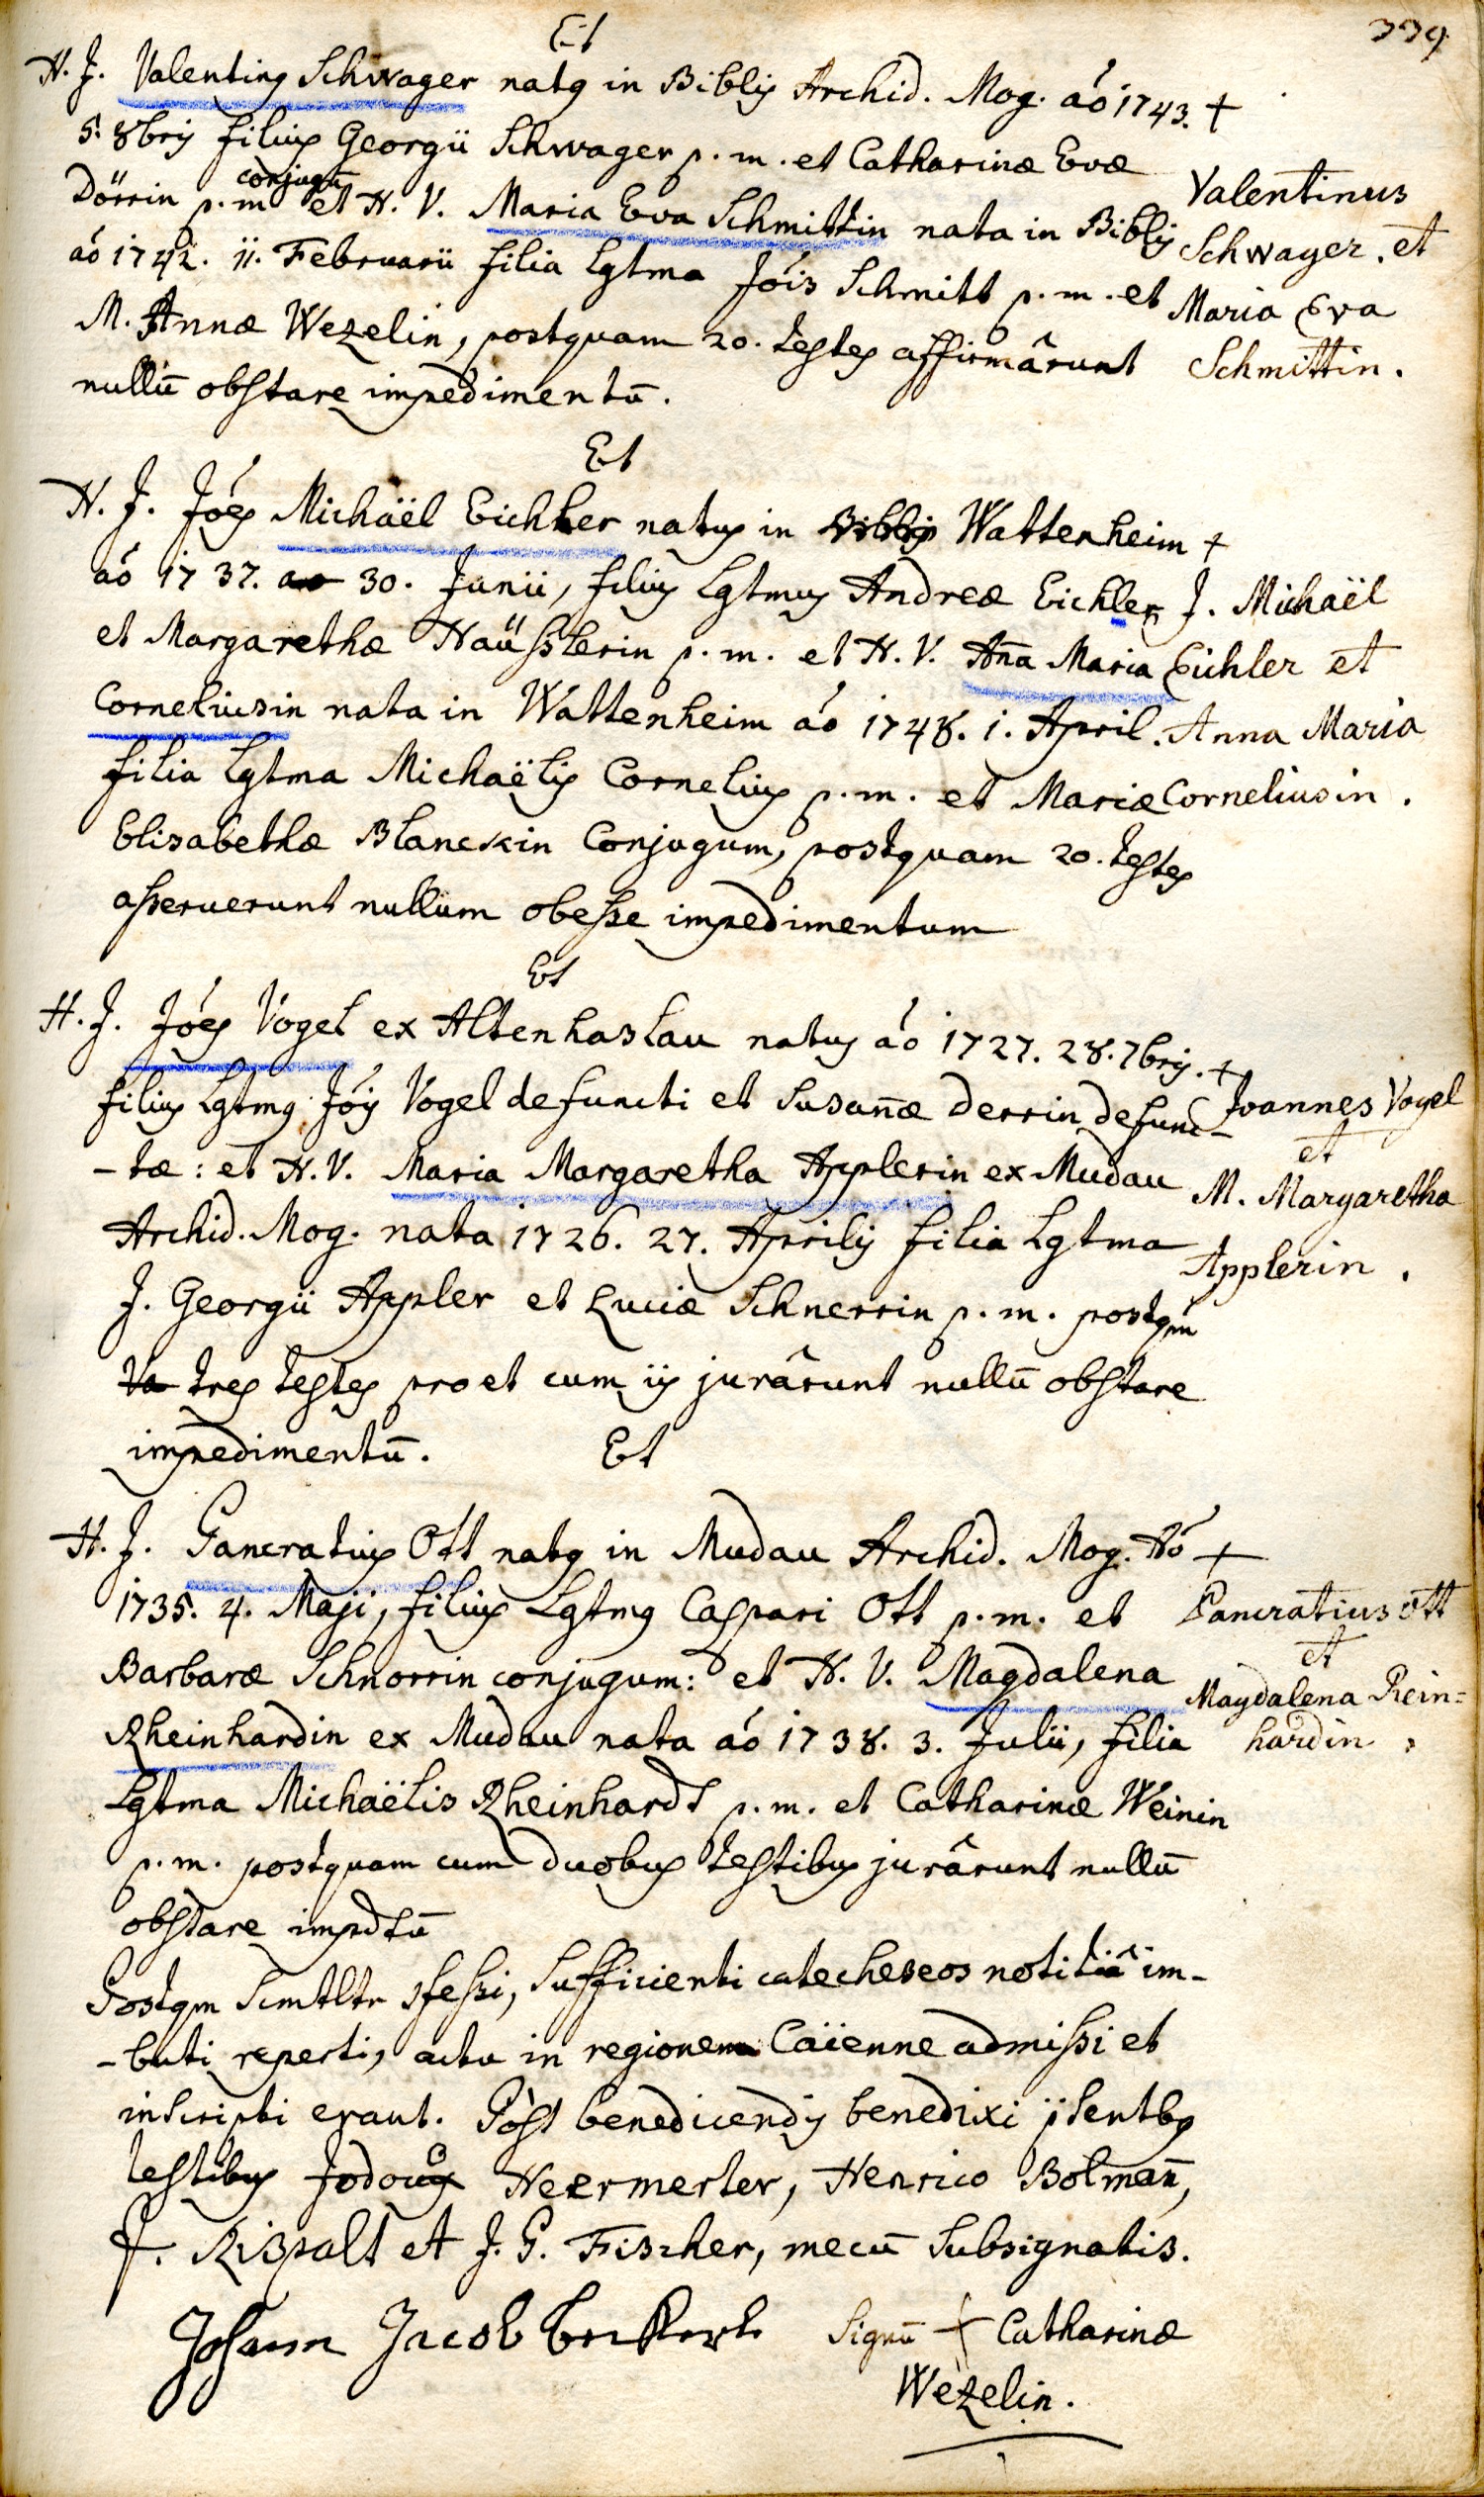 339.
Et
H. J. Valentinq Schwager natq in Biblis Archid. Mog. aó 1743. +
5. 8bris filius Georgii Schwager p. m. et Catharinæ Evæ
Dörrin p. m conjugū et H. V. Maria Eva Schmittin nata in Biblis
aó 1742. 11. Februarii filia lgtma Jóis Schmitt p. m. et
M. Annæ Wezelin, postquam 20. testes affirmârunt
nullū obstare impedimentū.
Valentinus
Schwager. et
Maria Eva
Schmittin.
Et
H. J. Jóes Michäël Eichler natus in Biblis Wattenheim +
aó 1737. ao 30. Junii, filius Lgtmus Andreæ Eichler
et Margarethæ Haüßlerin p. m. et H. V. Aña Maria
Corneliusin nata in Wattenheim aó 1748. 1. April.
filia lgtma Michaëlis Cornelius p. m. et Mariæ
Elisabethæ Blanckin Conjugum, postquam 20. testes
aßeruerunt nullum obeße impedimentum
J. Michäël
Eichler et
Anna Maria
Corneliusin.
Et
H. J. Jóes Vogel ex Altenhaslau natus aó 1727. 28. 7bris. +
filius Lgtmq Jóis Vogel defuncti et Susañæ Derrin defunc-
-tæ: et H. V. Maria Margaretha Applerin ex Mudau
Archid. Mog. nata 1726. 27. Aprilis filia Lgtma
J. Georgii Appler et Luciæ Schnerrin p. m. postqm
Va tres testes pro et cum iis jurârunt nullū obstare
impedimentū.
Joannes Vogel
et
M. Margaretha
Applerin.
Et
H. J. Pancratius Ott natq in Mudau Archid. Mog. Aó +
1735. 4. Maji, filius Lgtmq Caspari Ott p. m. et
Barbaræ Schnorrin conjugum: et H. V. Magdalena
Rheinhardin ex Mudau nata aó 1738. 3. Julii, filia
Lgtma Michaëlis Rheinhardt p. m. et Catharinæ Weinin
p. m. postquam cum duobus testibus jurârunt nullū
obstare impdtū
Pancratius Ott
et
Magdalena Rein=
hardin.
Postqm Scmtltr feßi, sufficienti catecheseos notitiâ im-
-buti reperti, actu in regionem Caïenne admißi et
inscripti erant. Póst benedicendis benedixi psentbq
testibus Jodoco Heermerter, Henrico Bolmañ,
P. Rispalt et J. G. Fischer, mecū subsignatis.
Johann Jacob Signū + Catharinæ
Wezelin.